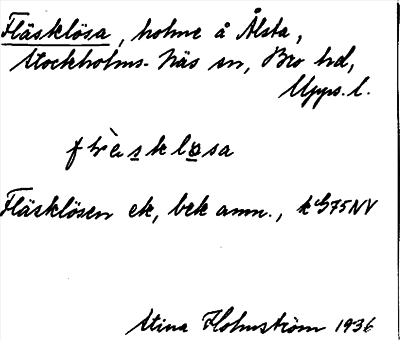 Fläsklösa, holme å Ålsta,
Stockholms-Näs sn, Bro hd,
Upps. l.
Fläsklösen ek, bek anm.,
Stina Holmström 1936